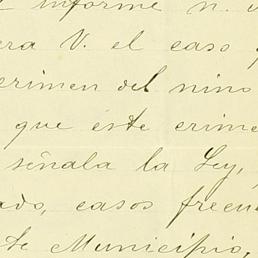 informe n.
era V. el caso
crimen del nino
que éste crime
señala la Ley,
ado, casos frecu
te Municipio,